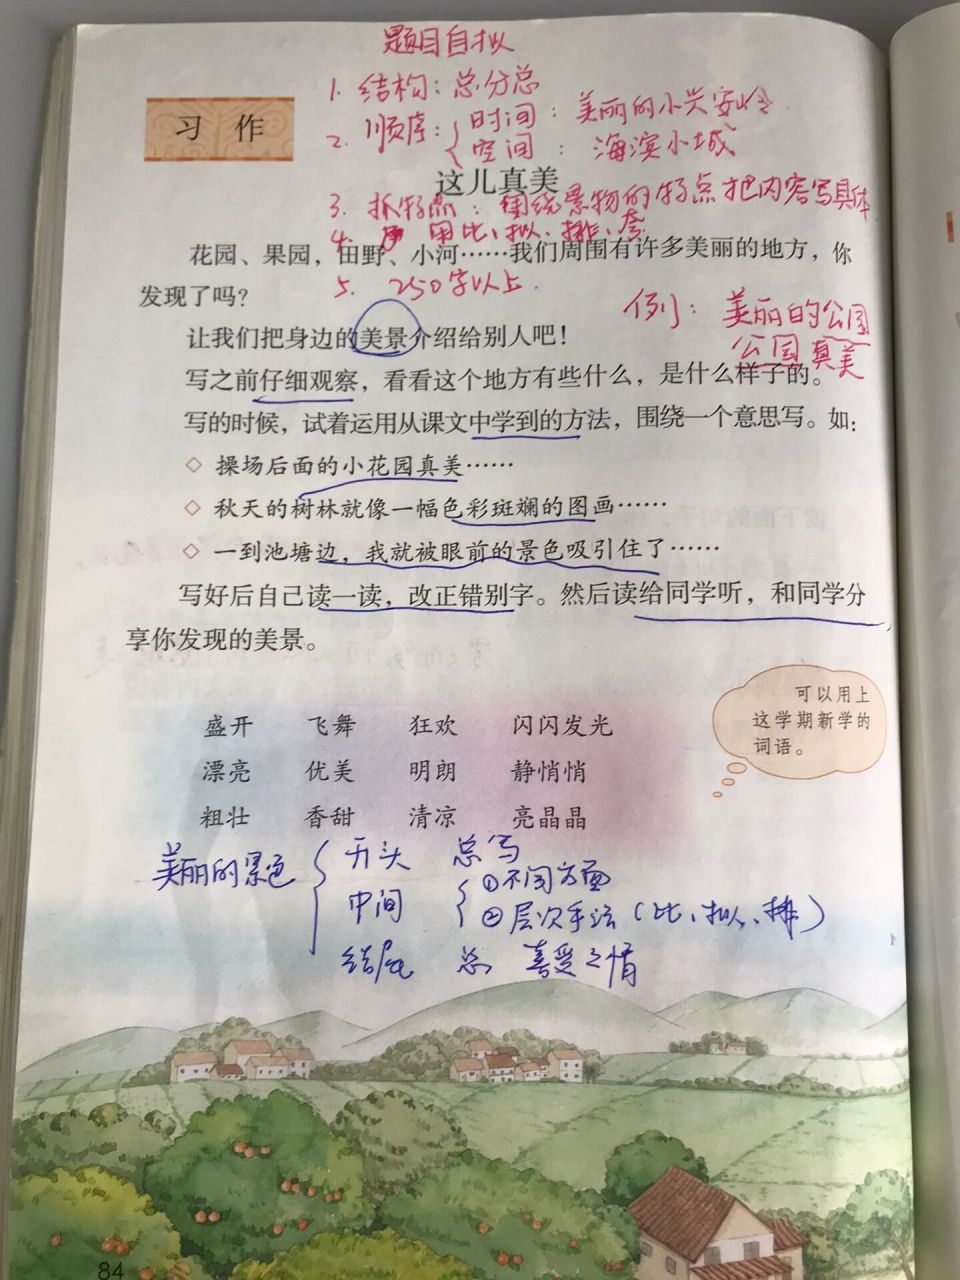 题目自拟
1. 结构：总分总
2. 顺序：{时间：美丽的小兴安岭
空间：海滨小城
习 作
这儿真美
3. 抓特点：围绕景物的特点把内容写具体
4. 用比、拟、排、夸
花园、果园，田野、小河……我们周围有许多美丽的地方，你
发现了吗？
5. 250字以上.
例：美丽的公园
公园真美
让我们把身边的美景介绍给别人吧！
写之前仔细观察，看看这个地方有些什么，是什么样子的。
写的时候，试着运用从课文中学到的方法，围绕一个意思写。如：
◇ 操场后面的小花园真美……
◇ 秋天的树林就像一幅色彩斑斓的图画……
◇ 一到池塘边，我就被眼前的景色吸引住了……
写好后自己读一读，改正错别字。然后读给同学听，和同学分
享你发现的美景。
可以用上
这学期新学的
词语。
盛开 飞舞 狂欢 闪闪发光
漂亮 优美 明朗 静悄悄
粗壮 香甜 清凉 亮晶晶
美丽的景色{开头 总写
中间{①不同方面
②层次手法（比、拟、排）
结尾 总 喜爱之情
84